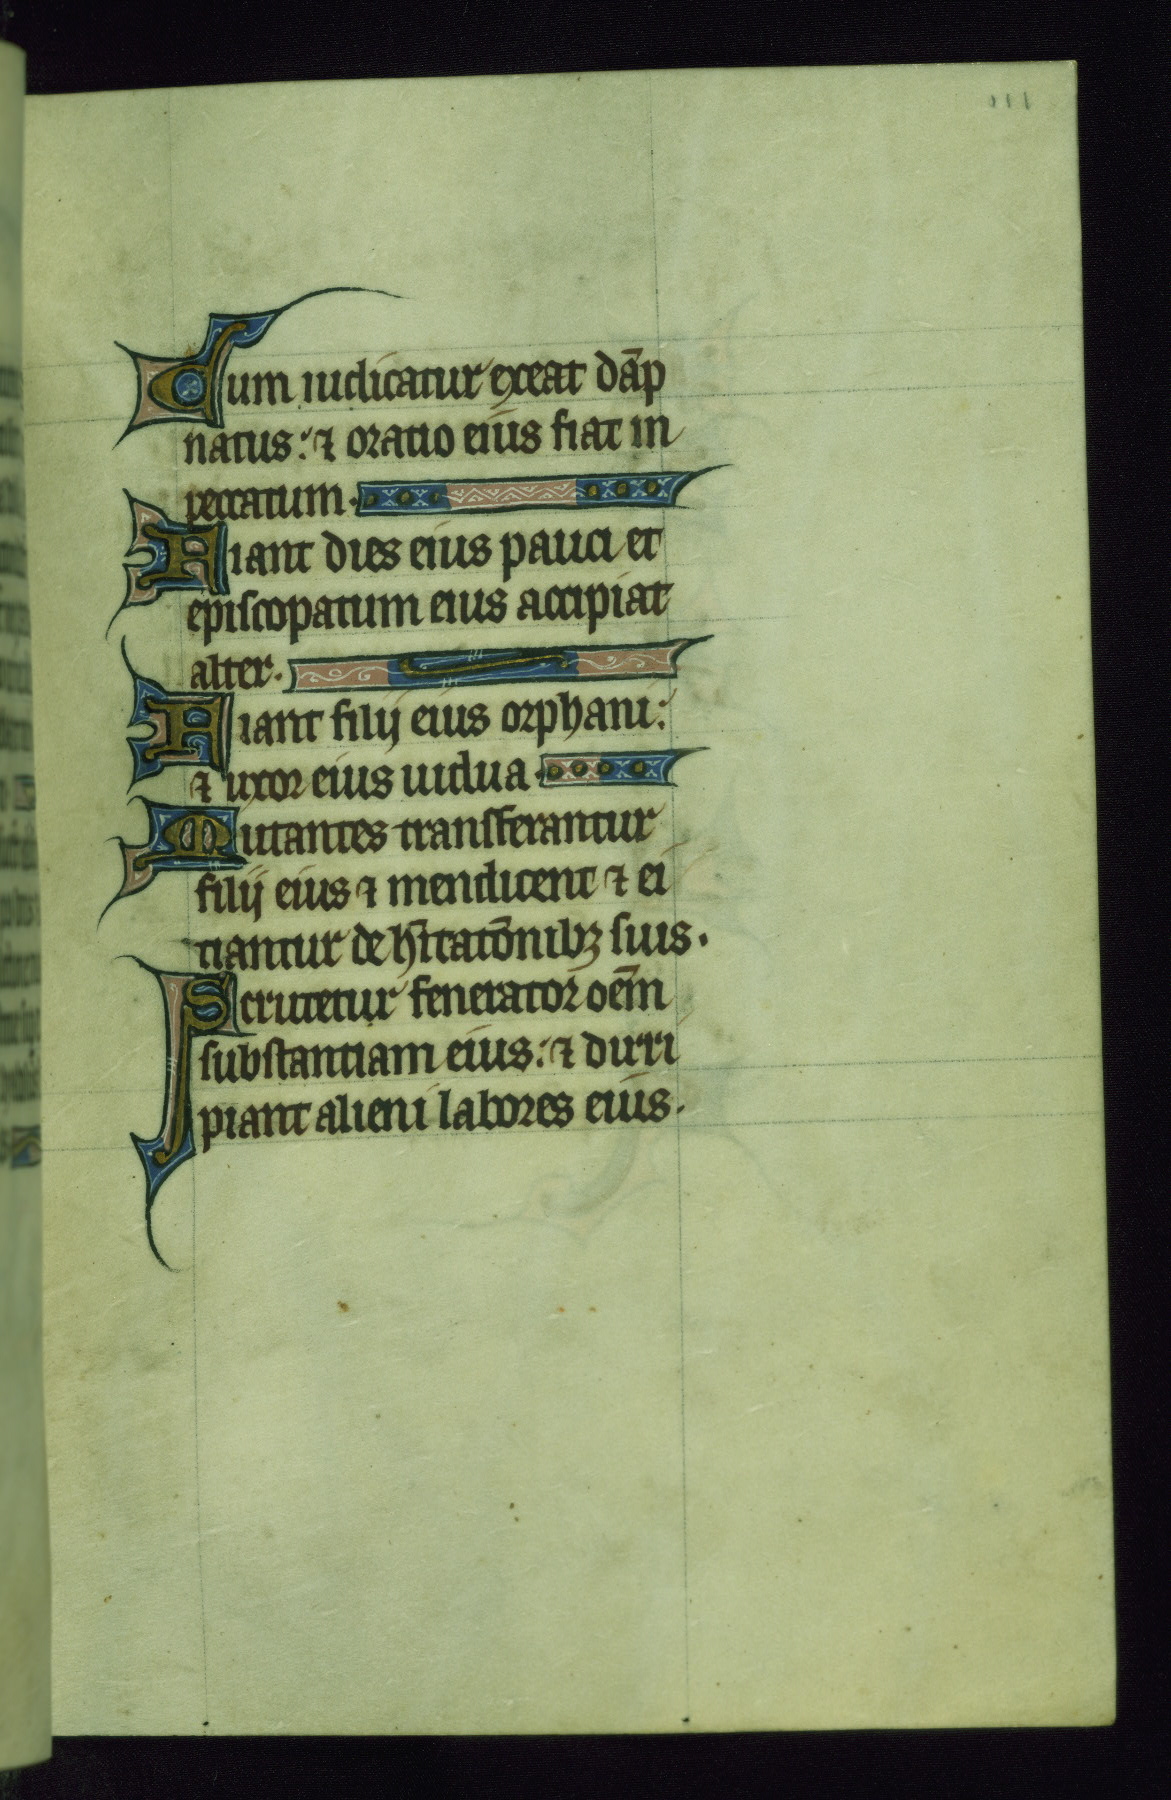 111
Cum iudicatur exeat dāp
natus: ⁊ oratio eius fiat in
peccatum.
Fiant dies eius pauci et
episcopatum eius accipiat
alter.
Fiant filij eius orphani:
⁊ uxor eius uidua.
Nutantes transferantur
filij eius ⁊ mendicent ⁊ ei
ciantur de h̄itatōnibꝫ suis.
Scrutetur fenerator oēm
substantiam eius: ⁊ diri
piant alieni labores eius.